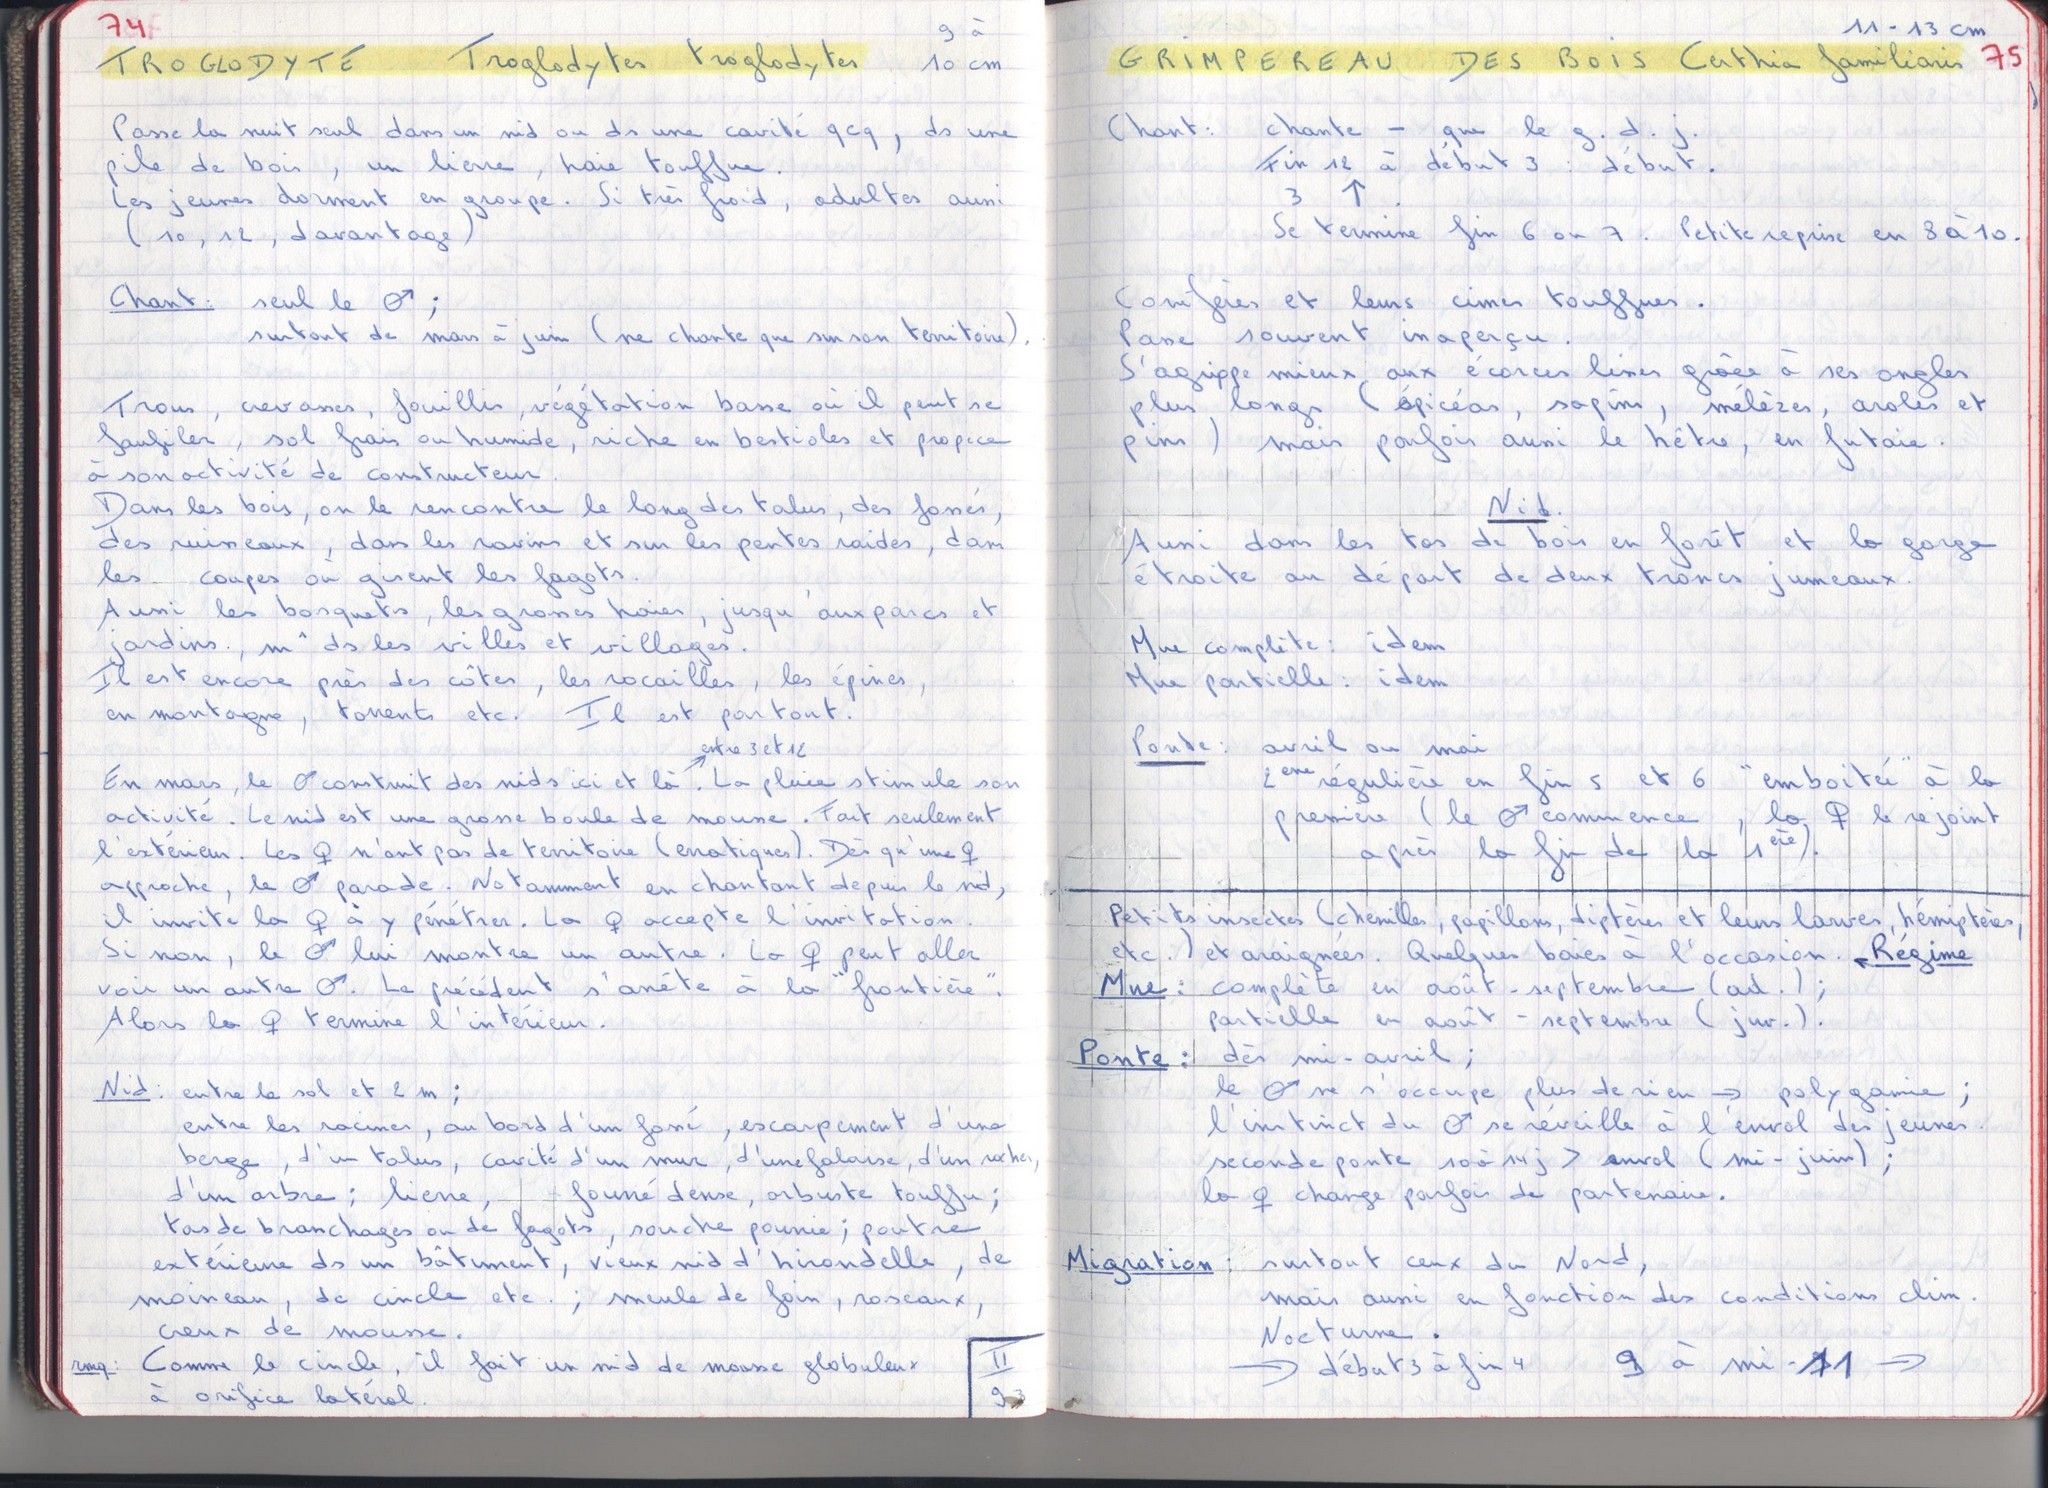 74
9 à
TROGLODYTE Troglodytes troglodytes 10 cm
Passe la nuit seul dans un nid ou ds une cavité qcq, ds une
pile de bois, un lierre, haie touffue.
Les jeunes dorment en groupe. Si très froid, adultes aussi
(10, 12, davantage)
Chant: seul le ♂;
surtout de mars à juin (ne chante que sur son territoire).
Trous, crevasses, fouillis, végétation basse où il peut se
faufiler, sol frais ou humide, riche en bestioles et propice
à son activité de constructeur.
Dans les bois, on le rencontre le long des talus, des fossés,
des ruisseaux, dans les ravins et sur les pentes raides, dans
les coupes où gisent les fagots.
Aussi les bosquets, les grosses haies, jusqu'aux parcs et
jardins., m^ ds les villes et villages.
Il est encore près des côtes, les rocailles, les épines,
en montagne, torrents etc. Il est partout.
entre 3 et 12
En mars, le ♂ construit des nids ici et là. La pluie stimule son
activité. Le nid est une grosse boule de mousse. Fait seulement
l'extérieur. Les ♀ n'ont pas de territoire (erratiques). Dès qu'une ♀
approche, le ♂ parade. Notamment en chantant depuis le nid,
il invite la ♀ à y pénétrer. La ♀ accepte l'invitation.
Si non, le ♂ lui montre un autre. La ♀ peut aller
voir un autre ♂. Le précédent s'arrête à la "frontière".
Alors la ♀ termine l'intérieur.
Nid: entre le sol et 2 m;
entre les racines, au bord d'un fossé, escarpement d'une
berge, d'un talus, cavité d'un mur, d'une falaise, d'un rocher,
d'un arbre; lierre, fourré dense, arbuste touffu;
tas de branchages ou de fagots, souche pourrie; poutre
extérieure ds un bâtiment, vieux nid d'hirondelle, de
moineau, de cincle etc.; meule de foin, roseaux,
creux de mousse.
rmq: Comme le cincle, il fait un nid de mousse globuleux
à orifice latéral.
II
93
11-13 cm
GRIMPEREAU DES BOIS Certhia familiaris 75
Chant: chante - que le g.d.j.
Fin 12 à début 3 : début.
3 ↑
Se termine fin 6 ou 7. Petite reprise en 8 à 10.
Conifères et leurs cimes touffues.
Passe souvent inaperçu.
S'agrippe mieux aux écorces lisses grâce à ses ongles
plus longs (épicéas, sapins, mélèzes, aroles et
pins) mais parfois aussi le hêtre, en futaie.
Nid.
Aussi dans les tas de bois en forêt et la gorge
étroite au départ de deux troncs jumeaux.
Mue complète: idem
Mue partielle: idem
Ponte: avril ou mai
2ème régulière en fin 5 et 6 "emboitée" à la
première (le ♂ commence, la ♀ le rejoint
après la fin de la 1ère).
Petits insectes (chenilles, papillons, diptères et leurs larves, hémiptères,
etc.) et araignées. Quelques baies à l'occasion. Régime
Mue: complète en août-septembre (ad.);
partielle en août-septembre (juv.).
Ponte: dès mi-avril;
le ♂ ne s'occupe plus de rien → polygamie;
l'instinct du ♂ se réveille à l'envol des jeunes.
seconde ponte 10 à 14 j > envol (mi-juin);
la ♀ change parfois de partenaire.
Migration: surtout ceux du Nord,
mais aussi en fonction des conditions clim.
Nocturne.
→ début 3 à fin 4 9 à mi-11 →